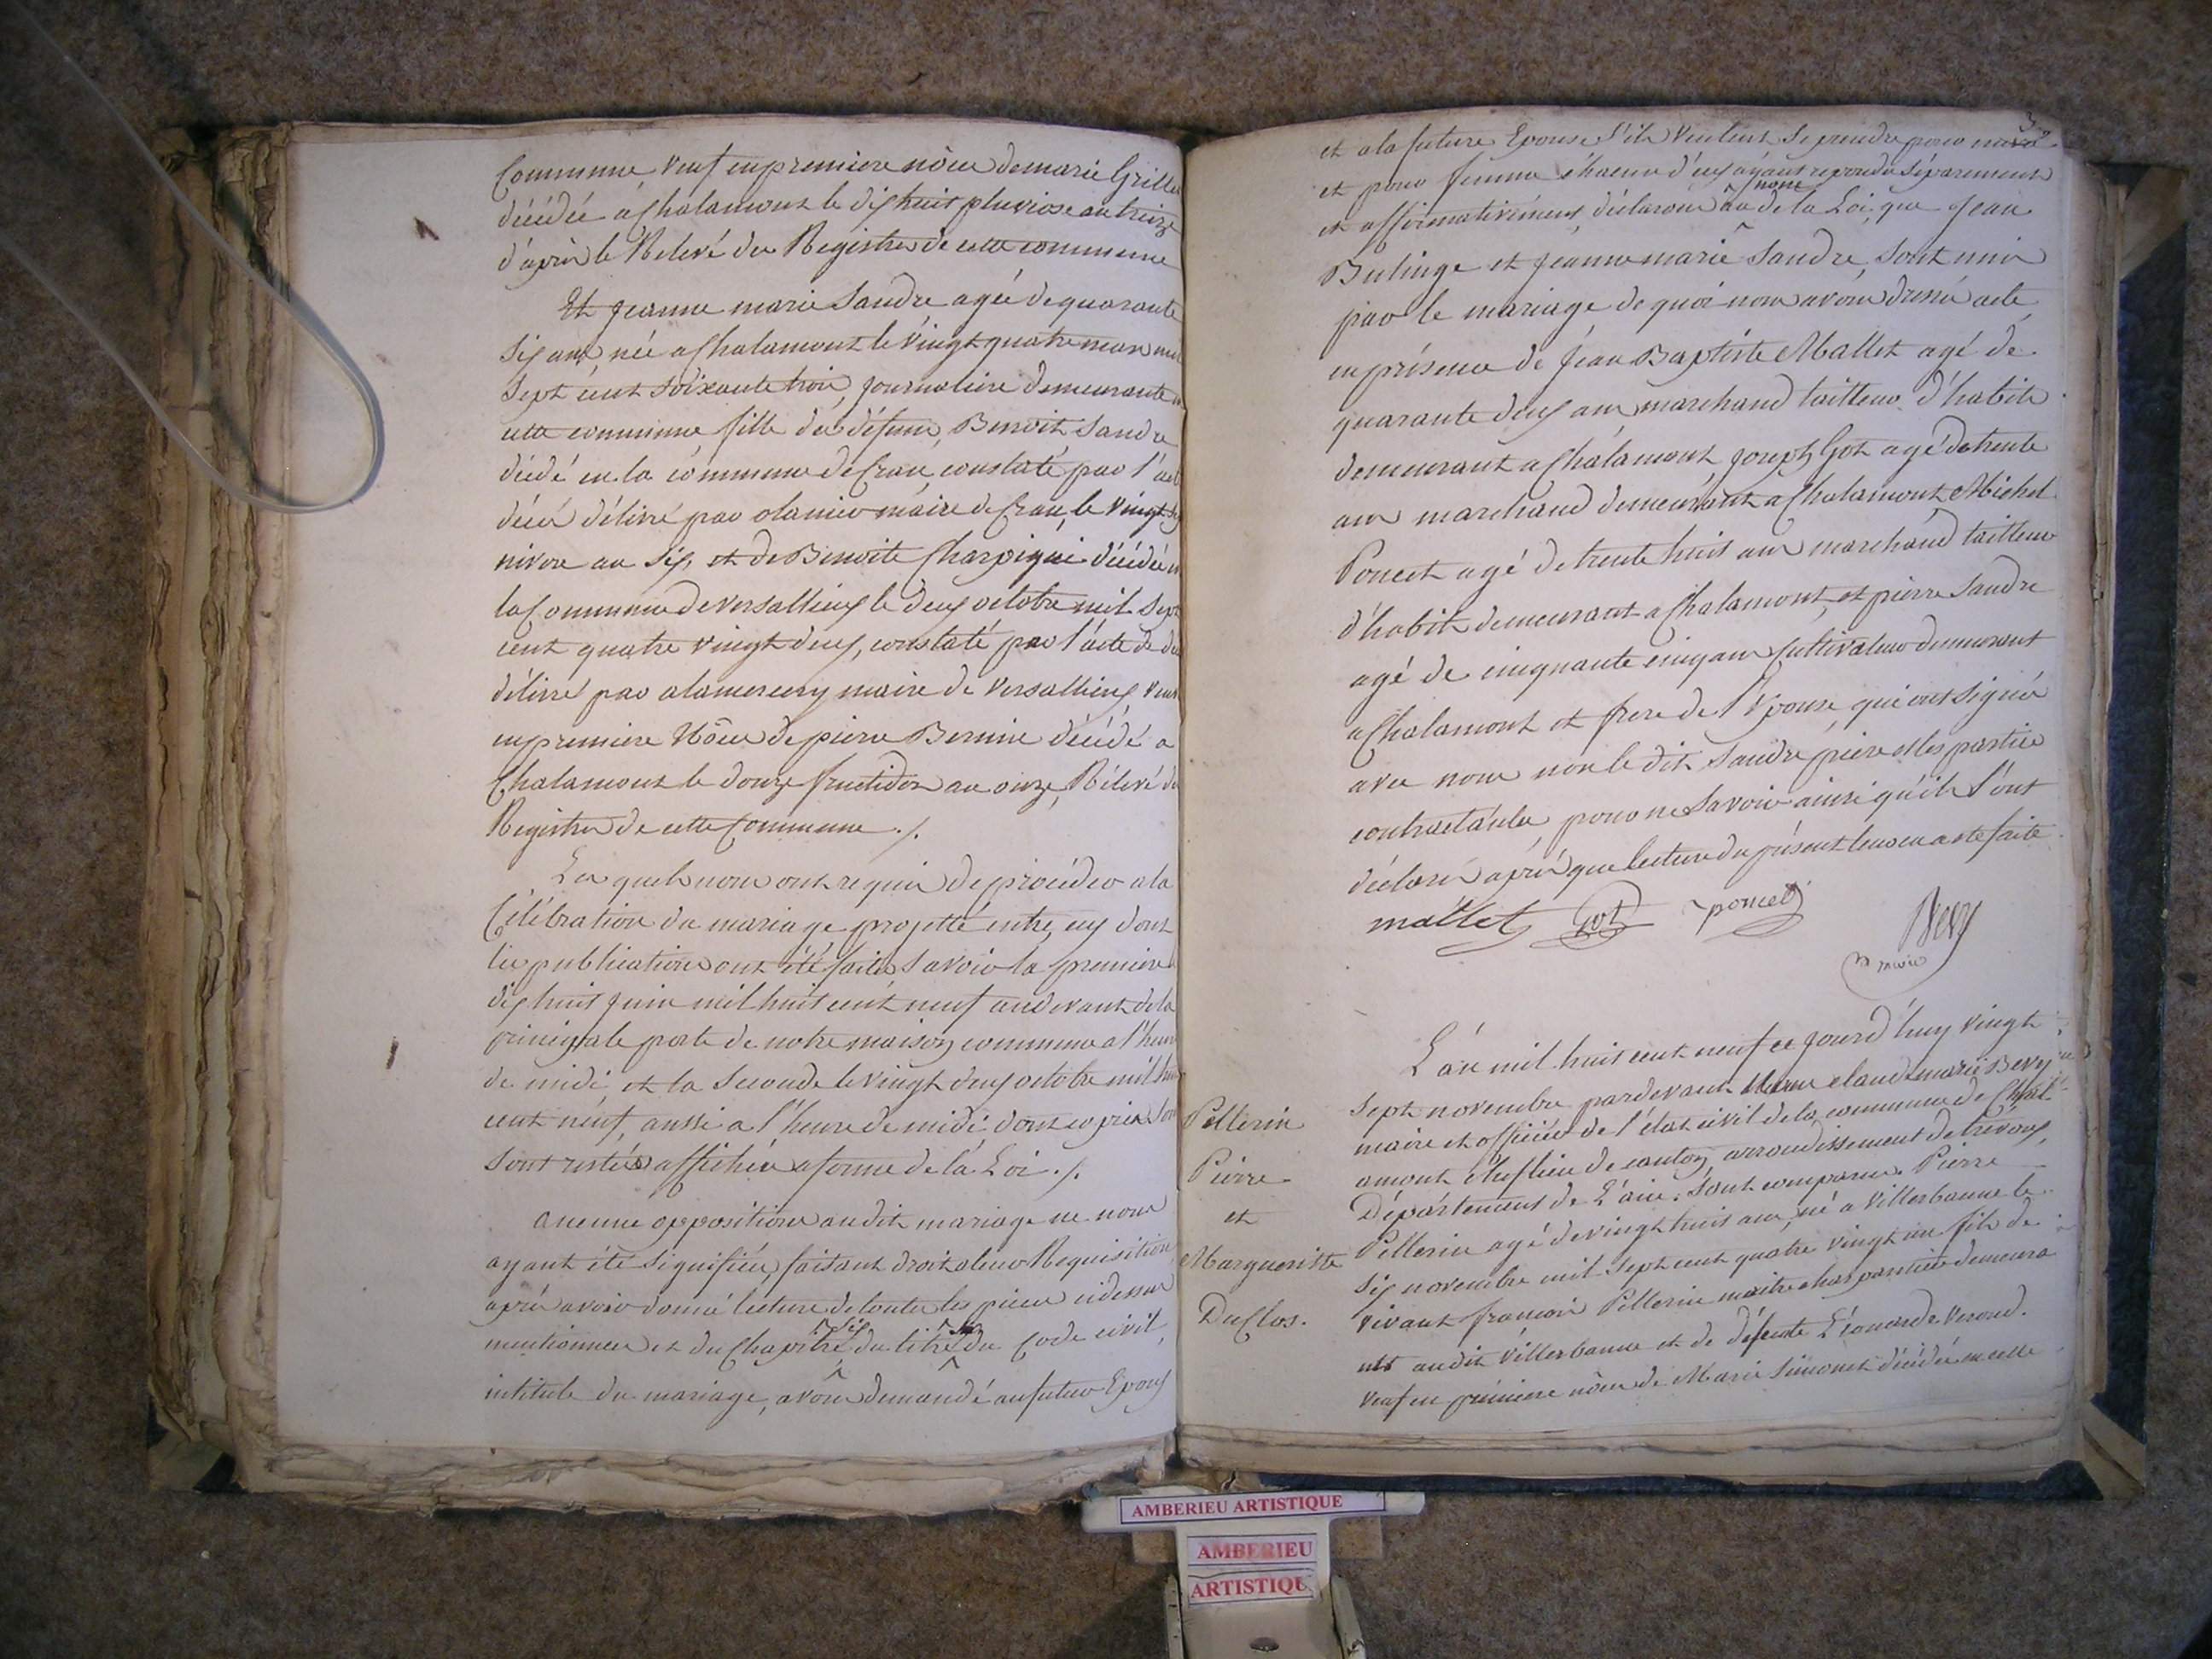 Commune, veuf en premiere nôces de marie Grillet
décédée a Chalamont le dix huit pluviose an treize
d'après le Relevé des Registres de cette commune
Et jeanne marie Sandre, agée de quarante
six ans, née a Chalamont le vingt quatre mars mil
sept cent soixante trois, journaliere demeurante en
cette commune fille de défunts, Benoit Sandre
décédé en la commune de Crans, constaté par l'acte
décés délivré par maire de Crans, le vingt six
nivose an six, et de Benoite décédée en
la Commune de Versallieux le deux octobre mil sept
cent quatre vingt deux, constaté par l'acte de décés
délivré par alamercery maire de Versallieux, veuve
en premiere Nôces de pierre Bernine décédé a
Chalamont le douze fructidor an onze, Rélevé des
Registres de cette Commune ./.
Les quels nous ont requis de procéder a la
Célébration du mariage projetté entre eux dont
les publications ont été faites savoir la premiere
dix huit juin mil huit cent neuf au devant de la
principale porte de notre maison commune a l'heure
de midi, et la seconde le vingt deux octobre mil huit
cent neuf, aussi a l'heure de midi, dont copies
sont restées affichées a forme de la Loi ./.
aucune oppositions audit mariage ne nous
ayant été signifiée, faisant droit a leur Requisition
aprés avoir donné lecture de toutes les pieces cidessus
six
mentionnees et du Chapitre du titre du Code civil,
intitulé du mariage, avons demandé au futur Epoux
3
et a la future Epouse s'ils veulent se prendre pour mari
et pour femme chacun d'eux ayant repondu séparement
nom
et affirmativement, déclarons au de la Loi, que jean
Bulinge et jeanne marie Sandre, sont unis
par le mariage de quoi nous avons dressé acte
en présence de jean Baptiste Mallet agé de
quarante deux ans, marchand tailleur d'habits
demeurant a Chalamont, joseph Got agé de trente
ans marchand demeurant a Chalamont, Michel
Poncet agé de trente huit ans marchand tailleur
d'habits demeurant a Chalamont, et pierre Sandre
agé de cinquante cinq ans Cultivateur demeurant
a Chalamont et frere de l'épouse, qui ont signés
avec nous non le dit Sandre pierre et les parties
contractantes, pour ne savoir ainsi qu'ils l'ont
déclarés aprés que lecture du présent leur en a eté faite.
mallet Got poncet Bevy
maire
L'an mil huit cent neuf ce jourd'huy vingt
sept novembre pardevant Nous claude marie Bevy
maire et officier de l'état civil de la commune de Chal
amont chef lieu de canton, arrondissement de trévoux,
Département de L'ain. Sont comparus Pierre
Pellerin agé de vingt huit ans, né a Villerbanne le
six novembre mil sept cent quatre vingt un fils de
vivant françois Pellerin maitre charpantier demeura
nt audit Villerbanne et de défunte Léonarde Veroud.
Veuf en premiere nôces de Marie Simonet décédée en cette
Pellerin
Pierre
et
Margueritte
DuClos.
AMBERIEU ARTISTIQUE
AMBERIEU
ARTISTIQU